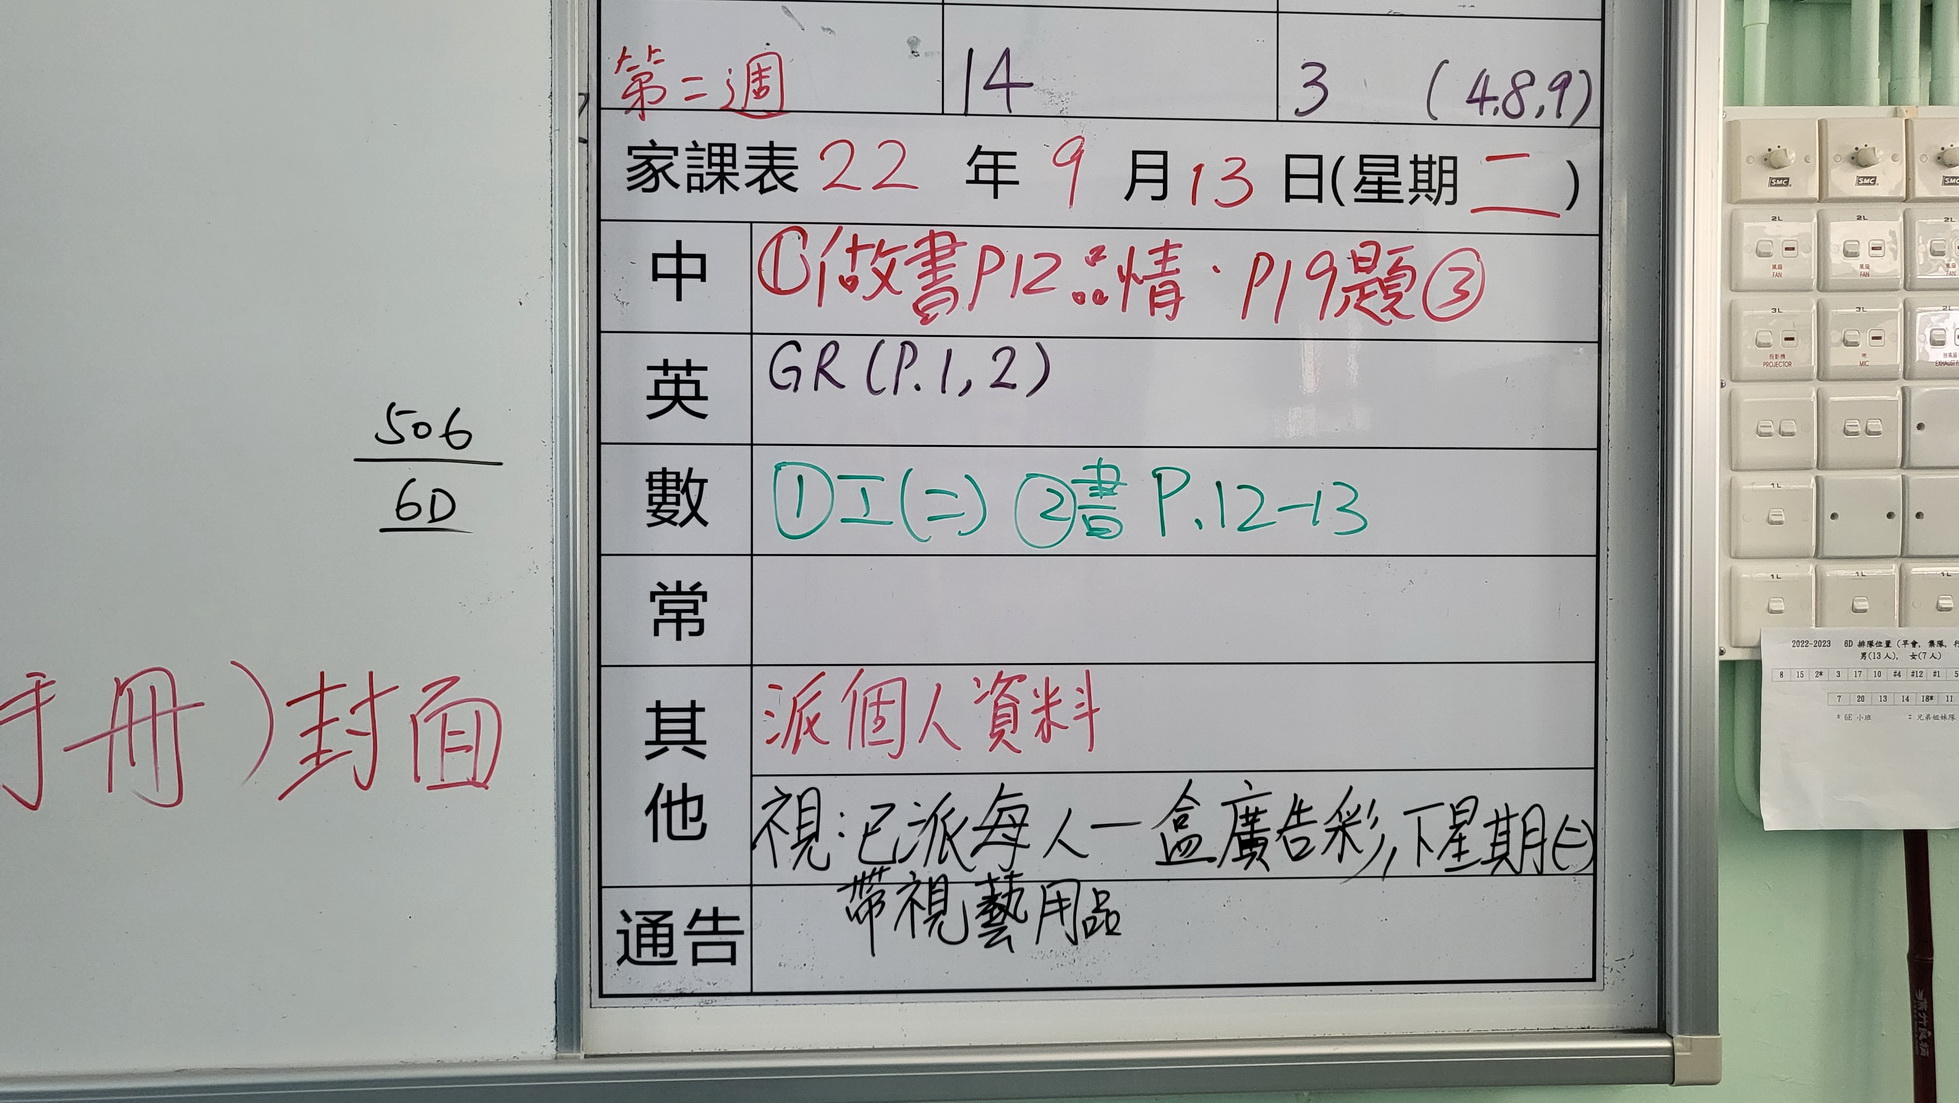 第二週 14 3 (4,8,9)
家課表 22 年 9 月 13 日(星期 二 )
中 ①做書P12品情、P19題③
英 GR (P.1, 2)
數 ①工(二) ②書 P.12-13
常
其他 派個人資料
視:已派每人一盒廣告彩,下星期(二)
帶視藝用品
通告
506
6D
手冊)封面
SMC SMC SMC
2L 2L 2L
風扇 風扇
FAN FAN FAN
3L 3L 2L
投影機 咪
PROJECTOR MIC
1L
1L 1L 1L
2022-2023 6D 排隊位置 (早會, 集隊,
男(13人), 女(7人)
8 15 2* 3 17 10 #4 #12 #1 5
7 20 13 14 18* 11
* 6E 小班